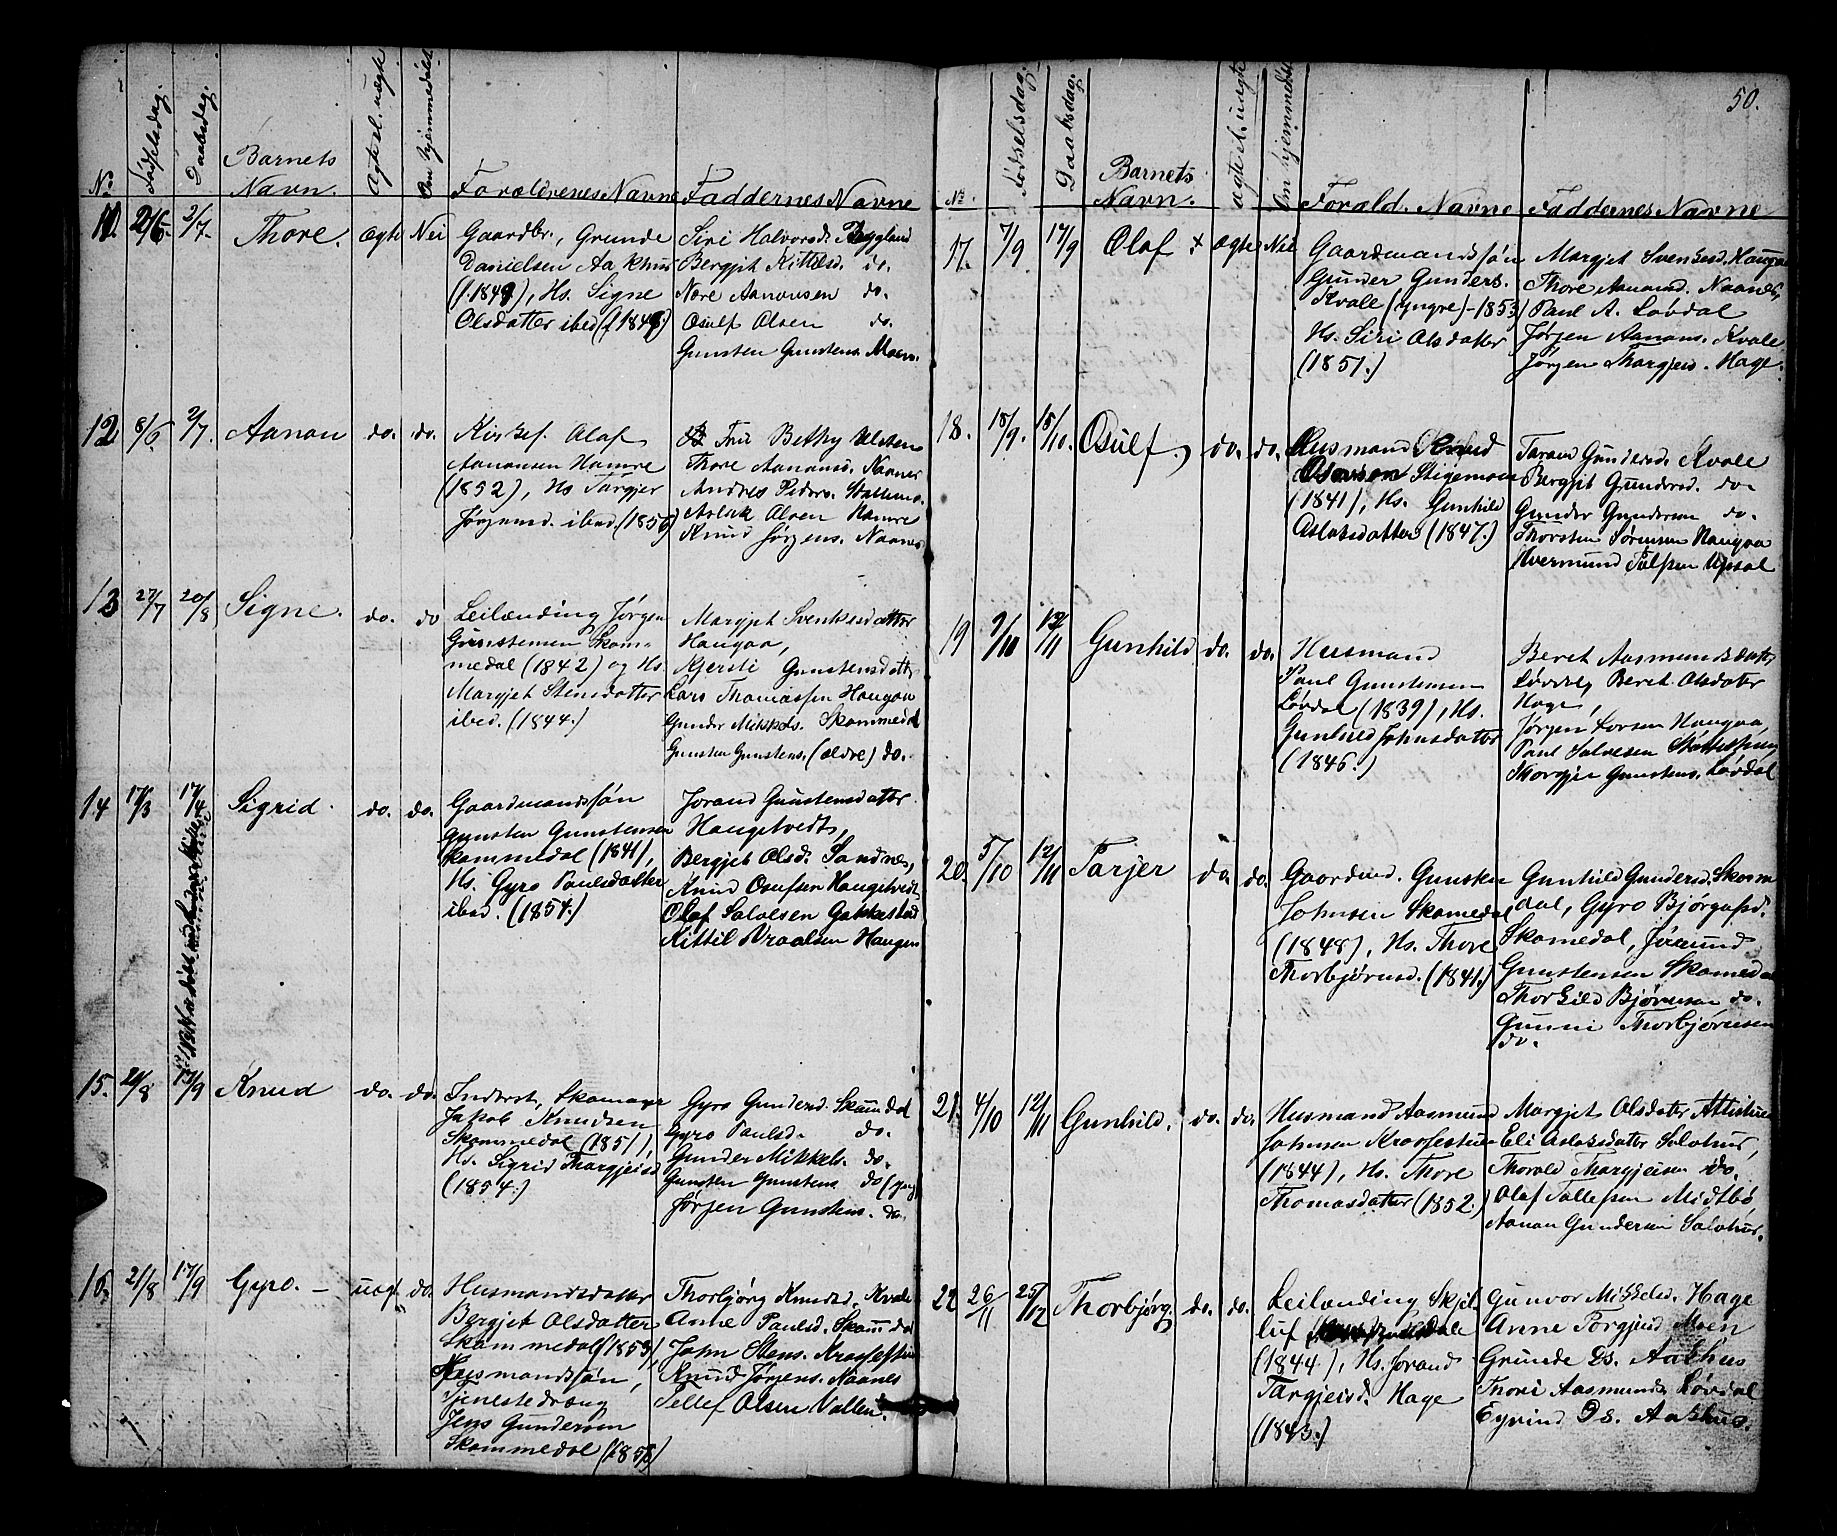 No.
Fødselsdag.
Daabsdag.
Barnets
Navn.
Ægte el. uægte
Om hjemmedøbt
Forældrenes Navne
Faddernes Navne
11. 2/7. Thore. ægte Nei
Gaardbr., Grunde
Danielsen Aakhus
(f. 1849), Hs. Signe
Olsdatter ibed
Siri Halvorsd. Bygland
Bergjit Kittilsd. do.
Nere Aanonsen do.
Osulf Olsen do.
Gunsten Gunstens. Moen.
12 8/6 2/7. Aanon do. do.
Olaf
Aanonsen Hamre
(1852), Hs Targjer
Jørgensd. ibed. (1856)
Fru Bethy
Thore Aanonsd. Naanes
Andres Peders.
Aslak Olsen Hamre
Knud Jørgens. Naanes
13 27/7 20/8 Signe. do. do
Leilænding Jørgen
Gunstensen Skom-
medal (1842) og Hs.
Margjet Stensdatter
ibed. (1844.)
Margjet Svenkesdatter
Haugaa,
Kjersti Gunstensdatt.
Lars Thomassen Haugaa
Gunder Mikkels. Skammedal
Gunsten Gunstens. (ældre) do.
14 17/3 17/4 Sigrid. do. do.
Gaardmandssøn
Gunsten Gunstensen
Skammedal (1841),
Hs. Gyro Paulsdatter
ibed. (1854.)
Jorand Gunstensdatter
Haugetvedt,
Bergjet Olsd. Sandnes,
Knud Osufsen Haugetvedt
Olaf Salvesen
Kittil Vraalsen Haugen
15. 20/8 17/9 Knud do. do.
Inderst, Skomager
Jakob Knudsen
Skammedal (1851),
Hs. Sigrid Thargjeisd
(1854.)
Gyro Gundersd. Skammdal
Gyro Paulsd. do.
Gunder Mikkels. do.
Gunsten Gunstens do (yng.)
Jørgen Gunstens. do.
16. 21/8 17/9 Gyro. uægt. do.
Husmandsdatter
Bergjet Olsdatter
Skammedal (1853),
Husmandssøn,
Tjenestedreng
Jens Gundersen
Skammedal
Thorbjørg Knudsd. Kvale
Anne Paulsd. Skammdal
John Stens.
Knud Jørgens. Naanes
Tellef Olsen Vallen.
50.
No.
Fødselsdag.
Daabsdag.
Barnets
Navn.
Ægte el. uægte
Om hjemmedøbt
Foræld. Navne
Faddernes Navne
17. 7/9 17/9 Olaf + ægte Nei
Gaardmandssøn
Gunder Gunders.
Kvale (yngre) - 1853
Hs. Siri Olsdatter
(1851.)
Margjet Svenkesd. Haugaa
Thore Aanonsd. Naanes,
Paul A. Løvdal
Jørgen Aanons. Kvale
Jørgen Thargjeis. Hage.
18. 18/9. 15/10. Osulf, do. do.
Husmand
Stigemoen
(1841), Hs. Gunhild
Aslaksdatter (1847.)
Taran Gundersd. Kvale
Bergjit Gundersd. do.
Gunder Gundersen do.
Thorsten Sørensen Haugaa
Hvermund Salvesen Upsal
19 9/10 12/11 Gunhild do. do.
Husmand
Paul Gunstensen
Løvdal (1839), Hs.
Gunhild Johnsdatter
(1846.)
Beret Aasmundsdatter
Løvdal, Beret Olsdater
Hage,
Jørgen Larsen Haugaa,
Paul Salvesen
Thorgjer Gunstens. Løvdal
20. 5/10 12/11 Tarjer do. do.
Gaardmd. Gunsten
Johnsen Skamedal
(1848), Hs. Thore
Thorbjørnsd. (1841.)
Gunhild Gundersd. Skam
dal, Gyro Bjørgufsd.
Skamedal, Jørund
Gunstensen Skamedal
Thorgild Bjørnsen do.
Gunni Thorbjørnsen
do.
21. 4/10 12/11 Gunhild. do. do.
Husmand Aasmund
Johnsen
(1844), Hs. Thore
Thomasdatter (1852.)
Margjet Olsdater
Eli Aslaksdatter Solshus,
Thorald Thargjeisen do.
Olaf Tallefsen Midtbø
Aanon Gundersen
22 26/11 25/12 Thorbjørg. do. do.
Leilænding Skjel
luf
(1844), Hs. Jorand
Targjeisd. Hage
(1843.)
Gunvor Mikkelsd. Hage
Anne Torgjeisd Moen
Grunde Ds. Aakhus
Thore Aasmunds Løvdal
Eyvind Ds. Aakhus.